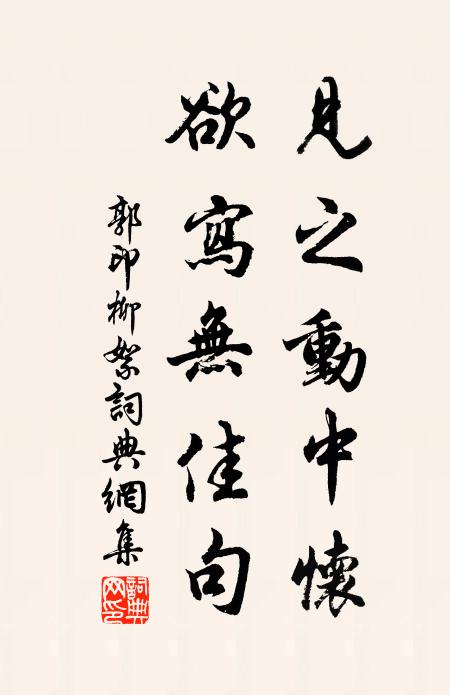 見之動中懷
欲寫無佳句
郭印柳絮詞典網集
詞典
网